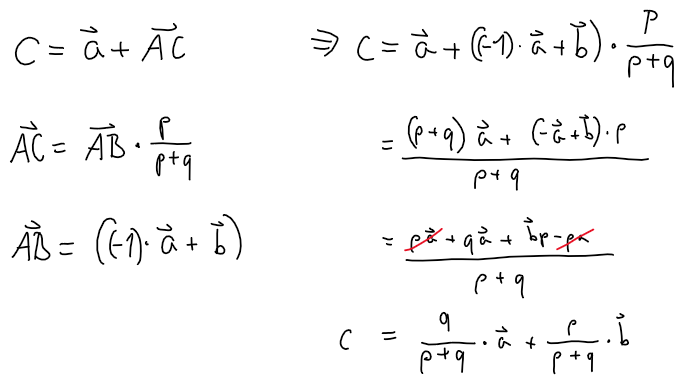 C = \vec{a} + \vec{AC}
\vec{AC} = \vec{AB} · \frac{p}{p+q}
\vec{AB} = ((-1)·\vec{a} + \vec{b})
⇒ C = \vec{a} + ((-1)·\vec{a} + \vec{b}) · \frac{p}{p+q}
= \frac{(p+q)\vec{a} + (-\vec{a}+\vec{b})·p}{p+q}
= \frac{p\vec{a} + q\vec{a} + \vec{b}p - pa}{p+q}
C = \frac{q}{p+q} · \vec{a} + \frac{p}{p+q} · \vec{b}